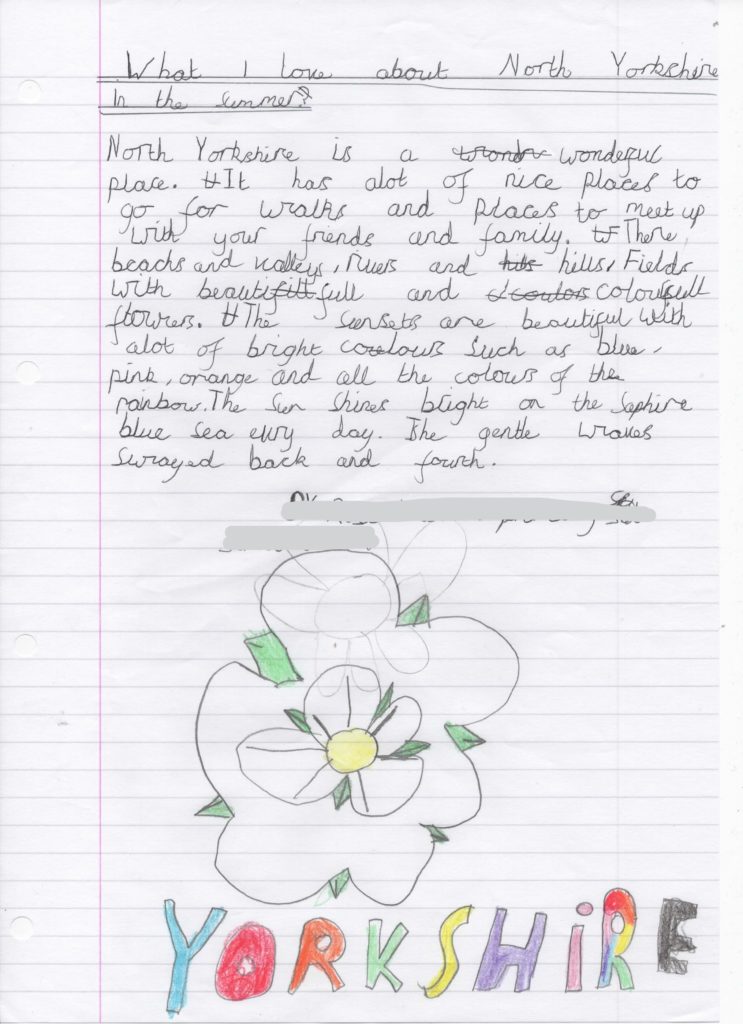 What I love about North Yorkshire
In the summer?
North Yorkshire is a wonderful
place. It has alot of nice places to
go for walks and places to meet up
with your friends and family. There,
beachs and valleys, rivers and hills, Fields
with beautifull and colourfull
flowers. The sunsets are beautiful with
alot of bright colours such as blue,
pink, orange and all the colours of the
rainbow. The sun shines bright on the saphire
blue sea evry day. The gentle waves
swayed back and fourth.
YORKSHIRE